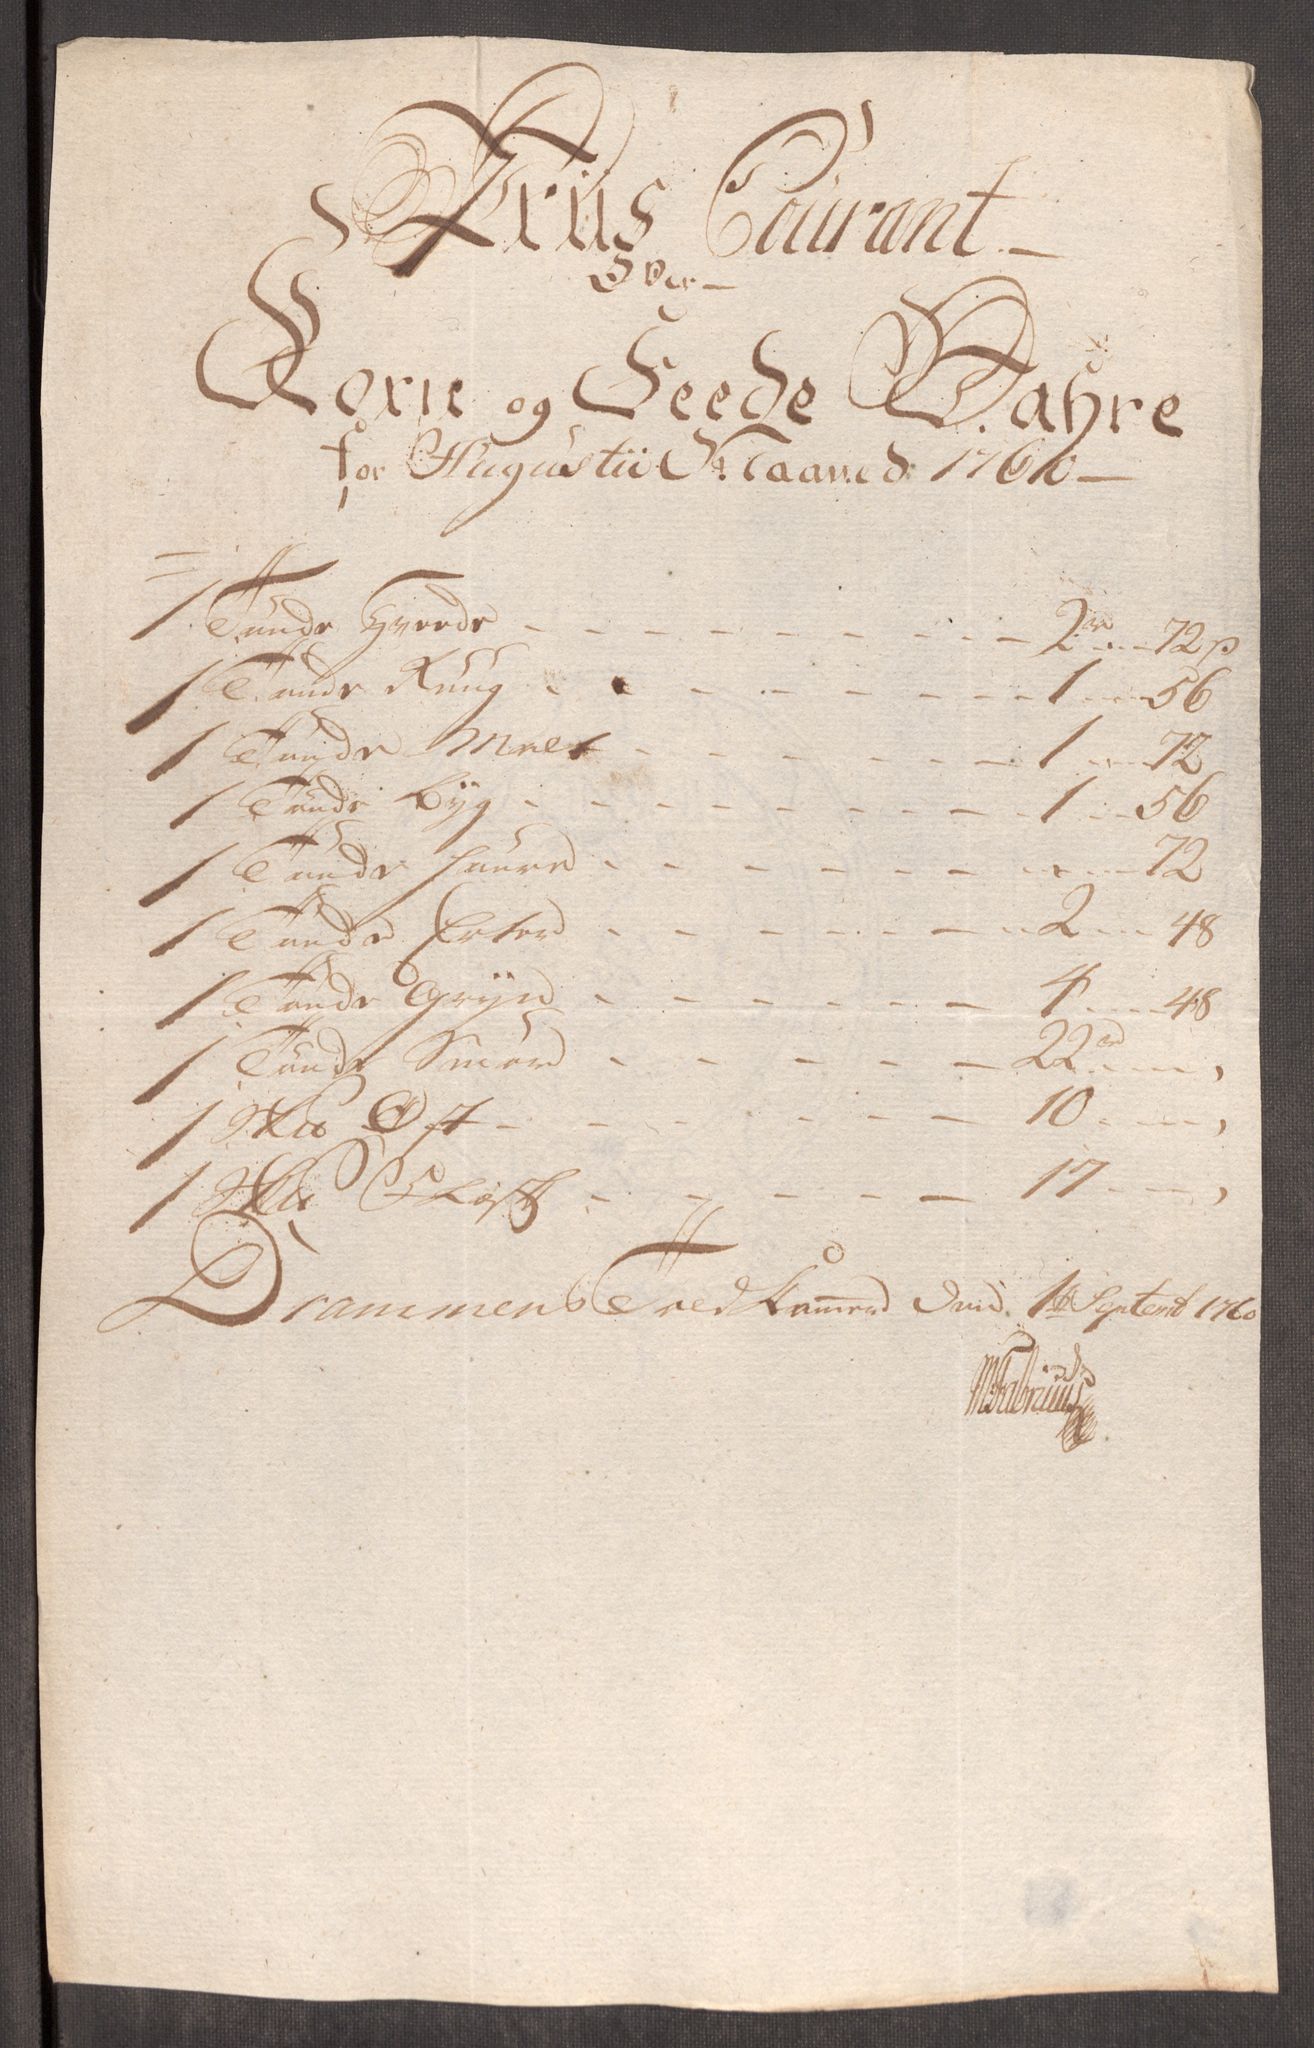 Priis Courant
Over
Korn og Feede Wahre
for Augustii Maaned 1760
1 Tønde Hvede 2 rd 72 s
1 Tønde Rüüg 1 56
1 Tønde Malt 1 72
1 Tønde Byg 1 56
1 Tønde Haure 72
1 Tønde Erter 2 48
1 Tønde Gryn 4 48
1 Tønde Smør 22 rd
1 10
1 17
Drammens Toed Kammer Dend 1te Septemb 1760
MFabriuus